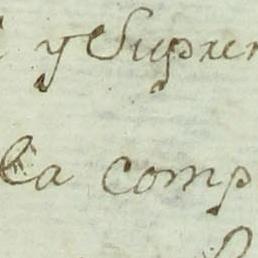 y Suprem
la comp